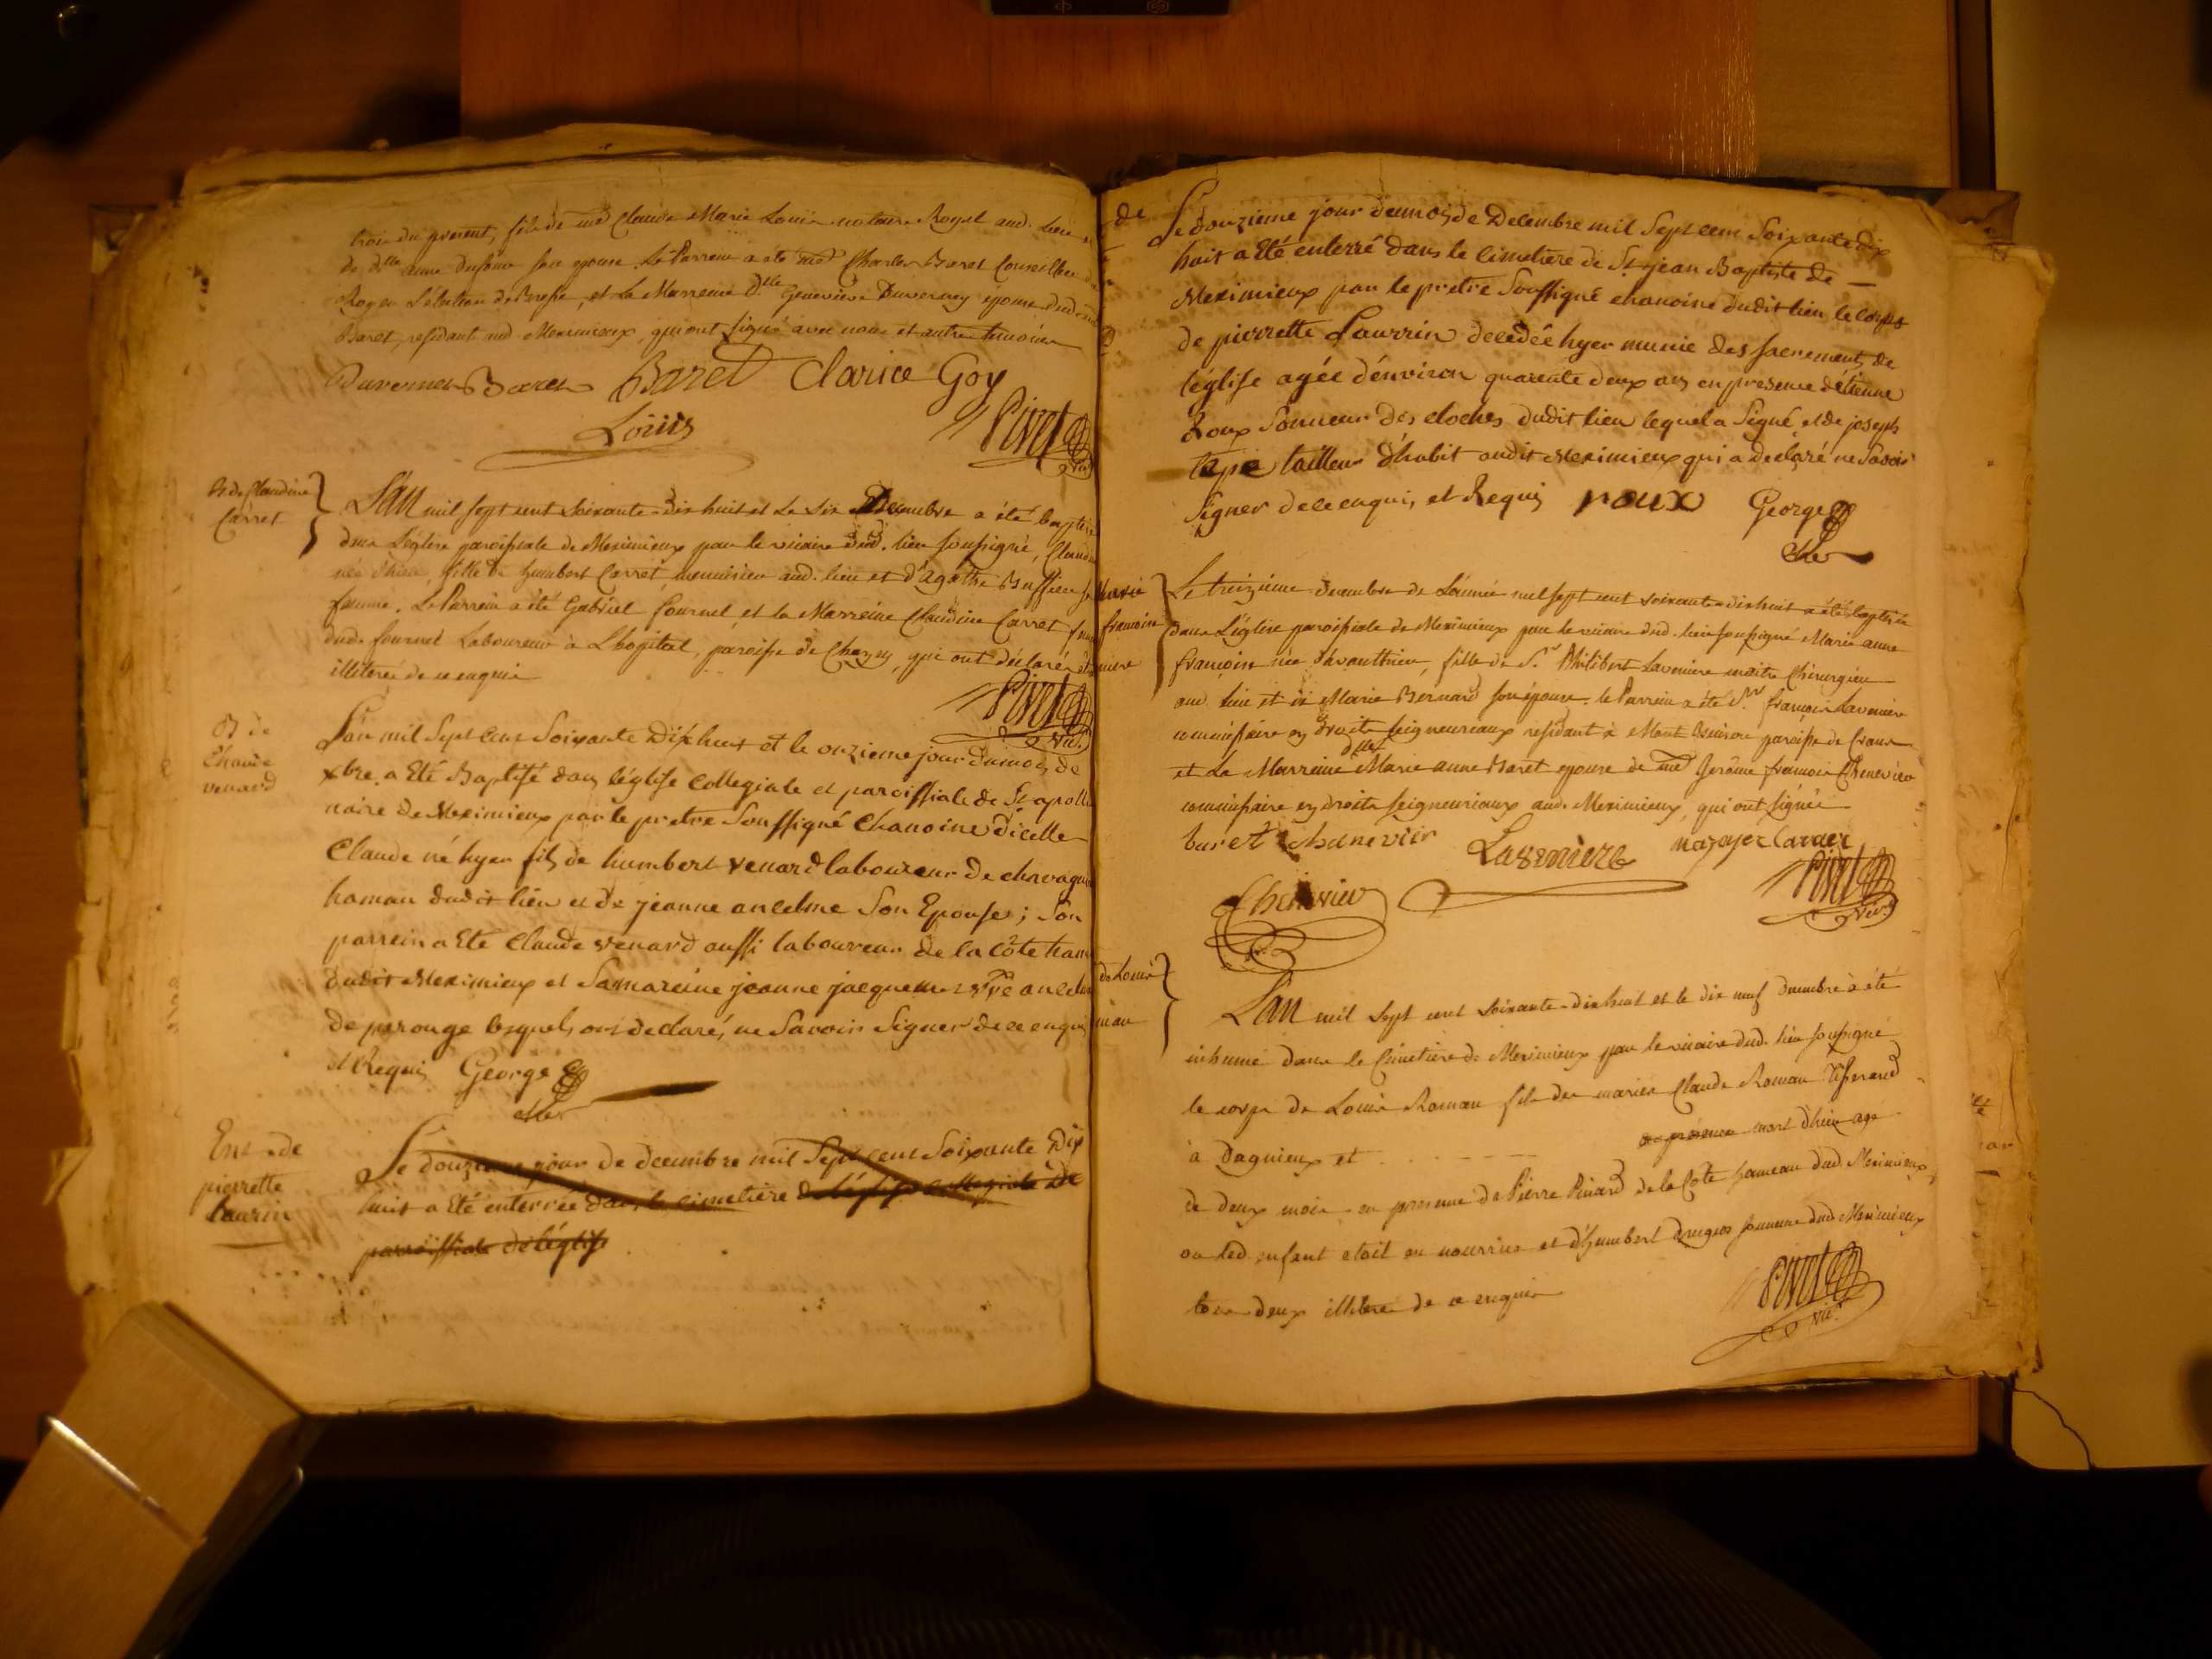 trois du present, fils de me Claude Marie Louis notaire Royal aud. lieu et
de dlle anne dufour son epouse. Le Parrein a été me Charles Baret Conseiller du
Roy en l'élection de Bresse, et la Marreine dlle Genevieve Duverney epouse dud.
Baret, residant aud Meximieux, qui ont signé avec nous et autres temoins
Duverney Baret Baret Clarice Goy
Louis
Pivet
vic.
B. de Claudine
Carret
L'an mil sept cent soixante-dix huit et le six Decembre a été baptisée
dans l'église paroissiale de Meximieux par le vicaire dud. lieu soussigné, Claudine
née d'hier, fille de humbert Carret, menuisier aud. lieu et d'Agathe Buffier sa
femme. Le Parrein a été Gabriel fournel, et la Marreine Claudine Carret femme
dud. fournel Laboureur à Lhopital, paroisse de Chazey, qui ont déclarés être
illiterés de ce enquis
Pivet
vic.
B de
Claude
venard
L'an mil Sept cens Soixante Dix huit et le onzieme jour du mois de
xbre. a Eté Baptisé dans l'église Collegiale et paroissiale de St apolli
naire de Meximieux par le pretre Soussigné Chanoine d'icelle
Claude né hyer fils de humbert venard laboureur de chavagnieu
hamau dudit lieu et de jeanne anselme Son Epouse; Son
parrein a Eté Claude venard aussi laboureur de la Côte hamau
dudit Meximieux et Sa mareine jeanne jacquemet vve anselme
de perouge lesquels ont declaré, ne Savoir Signer de ce enquis
et Requis George
Ent. de
pierrette
Laurin
Le douzieme jour de decembre mil Sept cent Soixante Dix
huit a Eté enterrée dans le cimetiere de l'église collegiale De
parroissiale de l'église
de
Le douzieme jour du mois de Decembre mil Sept cens Soixante dix
huit a Eté enterré dans le cimetiere de St jean Baptiste de
Meximieux par le pretre Soussigné chanoine dudit lieu le corps
de pierrette Laurrin decedée hyer munie des sacrements de
l'église agée d'énviron quarente deux ans en presence détienne
Roux Sonneur des cloches dudit lieu lequel a Signé, et de joseph
tailleur d'habit audit Meximieux qui a declaré ne Savoir
Signer de ce enquis et Requis roux George
marie
francoise
niere
Le treizieme Decembre de L'année mil sept cent soixante-dix huit a été baptisée
dans L'église paroissiale de Meximieux par le vicaire dud. lieu soussigné Marie anne
francoise née d'avanthier, fille de Sr Philibert Laveniere maitre Chirurgien
aud lieu et de Marie Bernard son épouse. le Parrein a été Sr francois Laveniere
commissaire en droits seigneuriaux residant à Mont Buisson paroisse de Crans
et La Marreine dlle Marie anne Baret epouse de me Jerôme francois Chenevier
commissaire en droits seigneuriaux aud. Meximieux, qui ont signés
baret chanevier Lavenière
Chenevier Pivet
vic.
de Louis
man
L'an mil sept cent soixante-dix huit et le dix neuf decembre a été
inhumé dans le Cimetiere de Meximieux par le vicaire dud. lieu soussigné
le corps de Louis Roman fils des mariés Claude Roman
à Dagnieux et de presence mort d'hier agé
de deux mois en presence de Pierre Pinard de la Côte hameau dud. Meximieux,
ou led. enfant etait en nourrice et d'humbert sonneur dud Meximieux
tous deux illiteré de ce enquis
Pivet
vic.